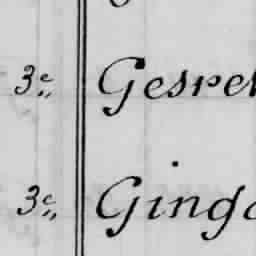 3e. Gesre
3e. Ging